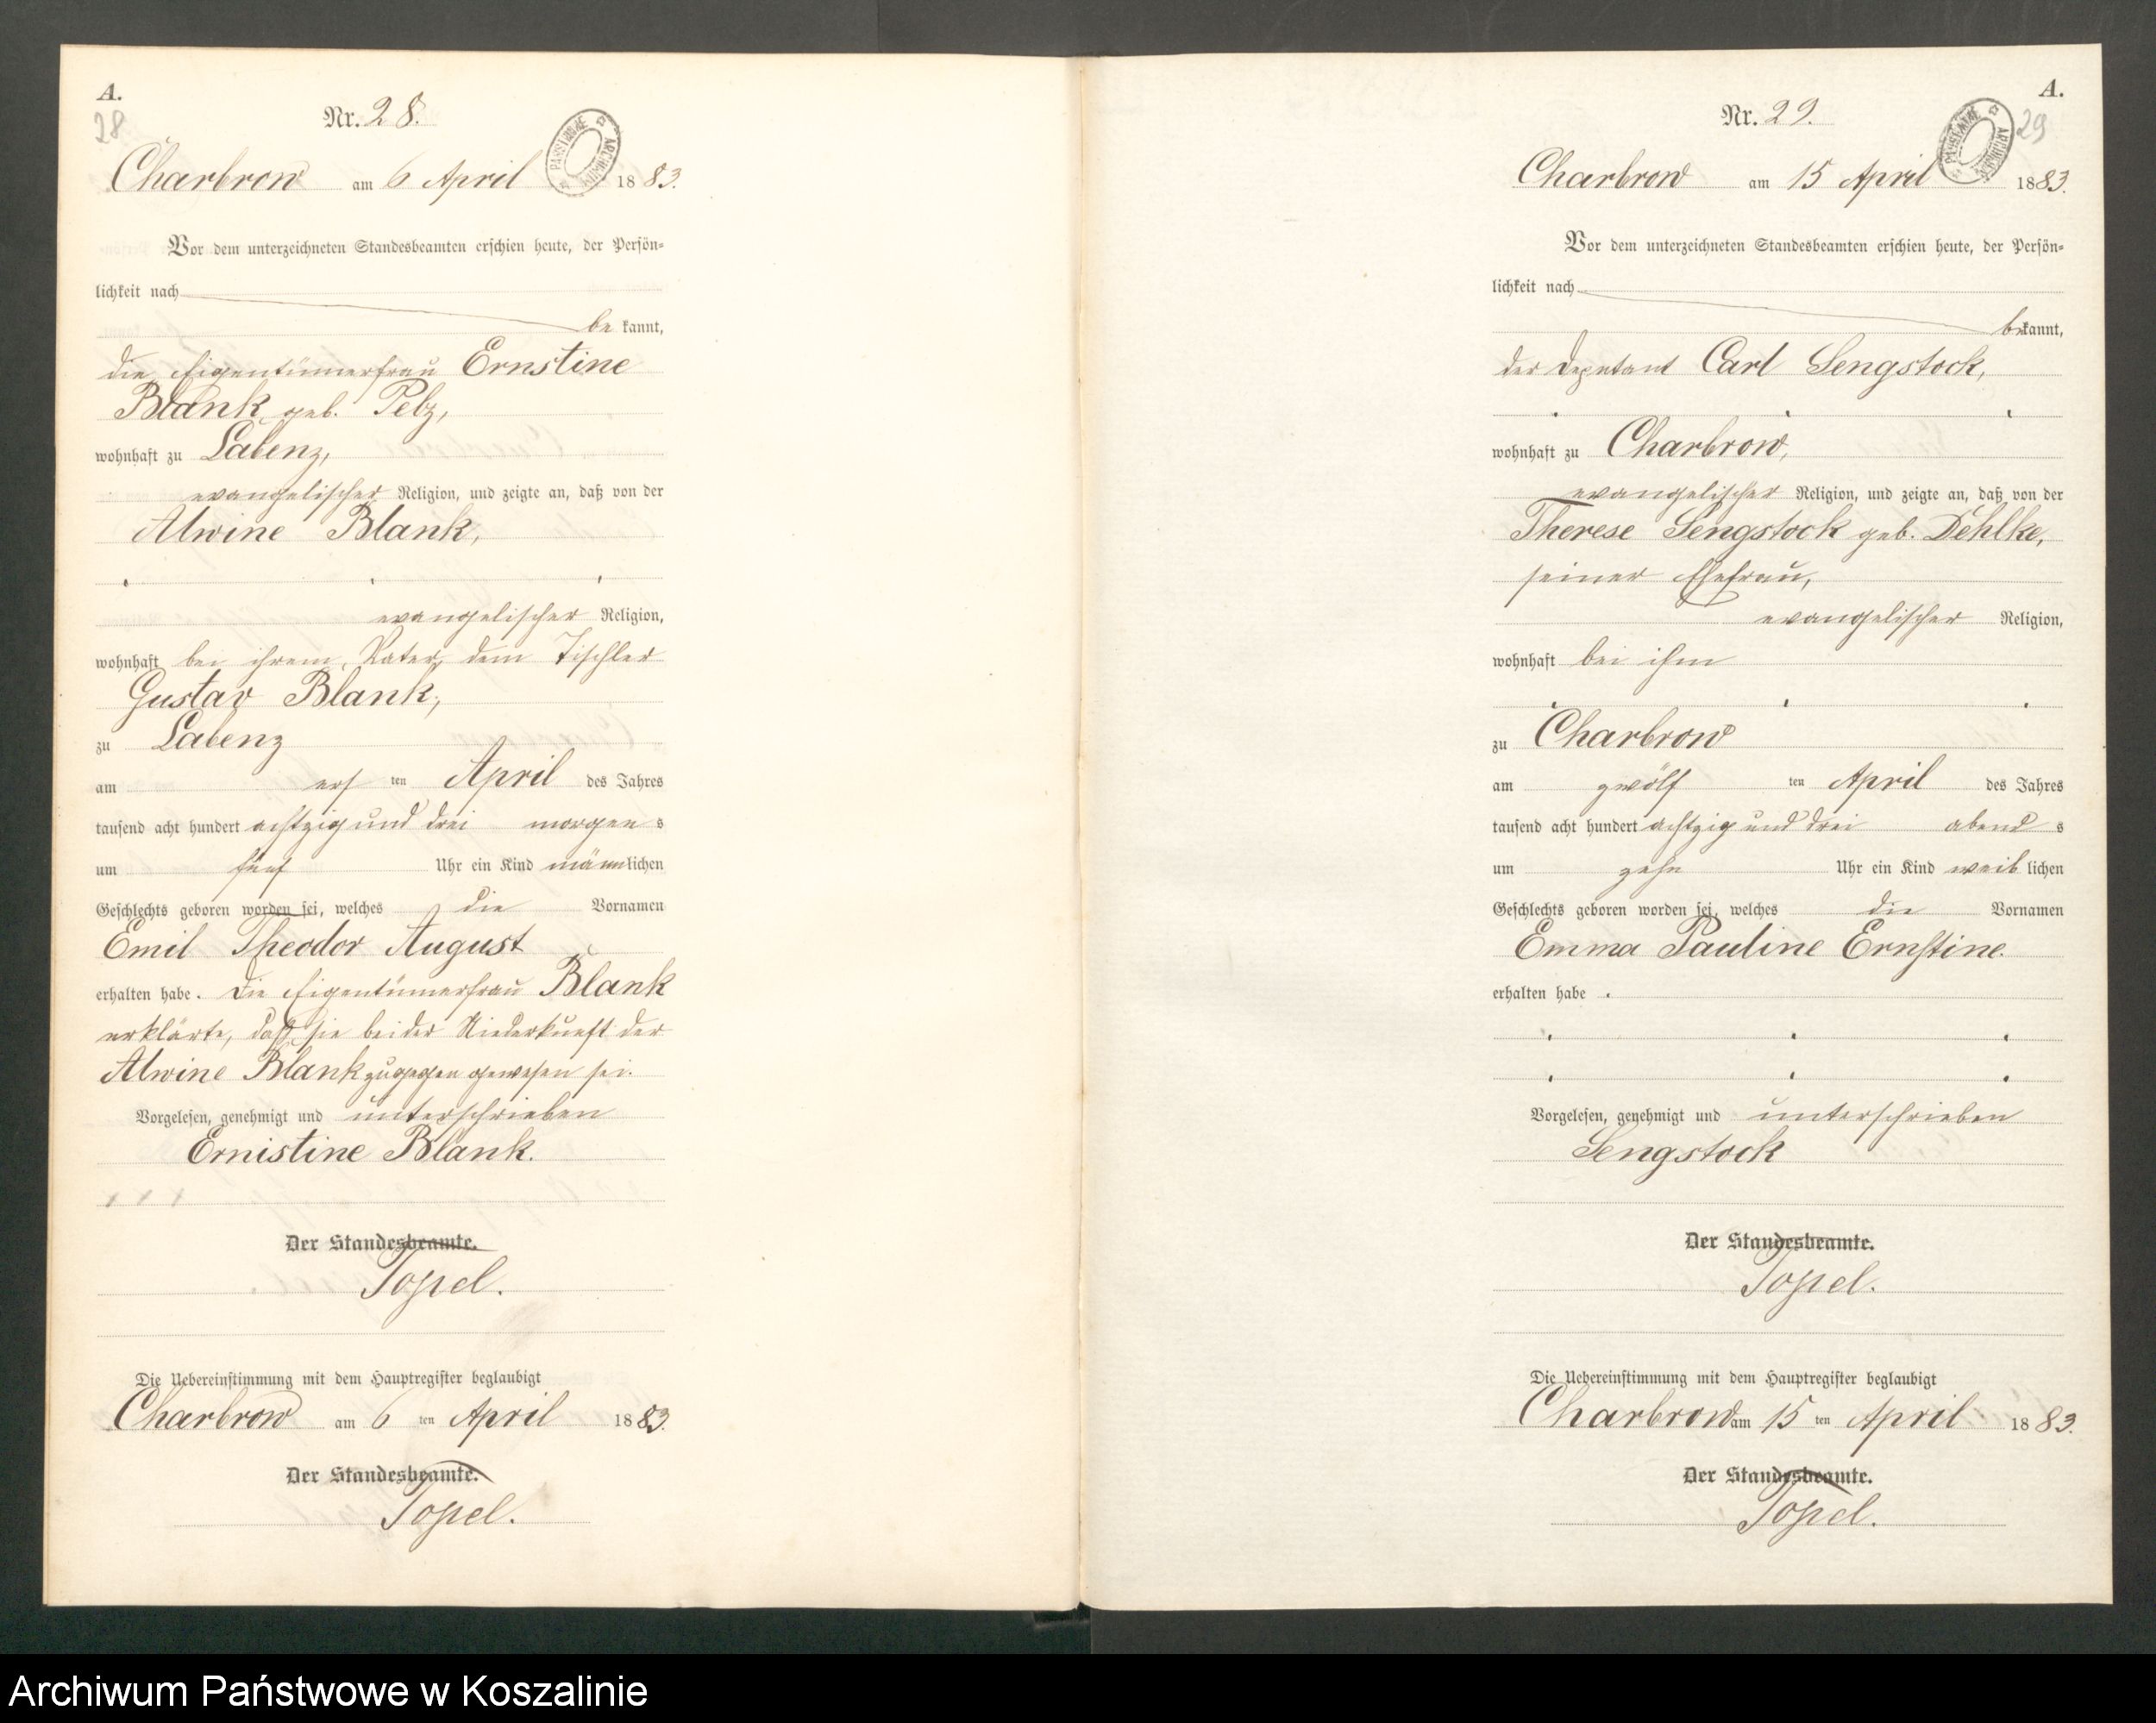 A.
28
Nr. 28.
PAŃSTWOWE ARCHIWUM
Charbrow am 6 April 1883.
Vor dem unterzeichneten Standesbeamten erschien heute, der Persön-
lichkeit nach
be kannt,
die Eigentümerfrau Ernstine
Blank geb. Pelz,
wohnhaft zu Labenz,
evangelischer Religion, und zeigte an, daß von der
Alwine Blank,
evangelischer Religion,
wohnhaft bei ihrem Vater, dem Tischler
Gustav Blank,
zu Labenz
am ers ten April des Jahres
tausend acht hundert achtzig und drei morgen s
um fünf Uhr ein Kind männlichen
Geschlechts geboren worden sei, welches die Vornamen
Emil Theodor August
erhalten habe. Die Eigentümerfrau Blank
erklärte, daß sie bei der Niederkunft der
Alwine Blank zugegen gewesen sei.
Vorgelesen, genehmigt und unterschrieben
Ernistine Blank.
Der Standesbeamte.
Topel.
Die Uebereinstimmung mit dem Hauptregister beglaubigt
Charbrow am 6 ten April 1883.
Der Standesbeamte.
Topel.
A.
29
Nr. 29.
PAŃSTWOWE ARCHIWUM
Charbrow am 15 April 1883.
Vor dem unterzeichneten Standesbeamten erschien heute, der Persön-
lichkeit nach
bekannt,
der Deputant Carl Sengstock,
wohnhaft zu Charbrow,
evangelischer Religion, und zeigte an, daß von der
Therese Sengstock geb. Dehlke,
seiner Ehefrau,
evangelischer Religion,
wohnhaft bei ihm
zu Charbrow
am zwölf ten April des Jahres
tausend acht hundert achtzig und drei abend s
um zehn Uhr ein Kind weib lichen
Geschlechts geboren worden sei, welches die Vornamen
Emma Pauline Ernstine.
erhalten habe.
Vorgelesen, genehmigt und unterschrieben
Sengstock
Der Standesbeamte.
Topel.
Die Uebereinstimmung mit dem Hauptregister beglaubigt
Charbrow am 15 ten April 1883.
Der Standesbeamte.
Topel.
Archiwum Państwowe w Koszalinie